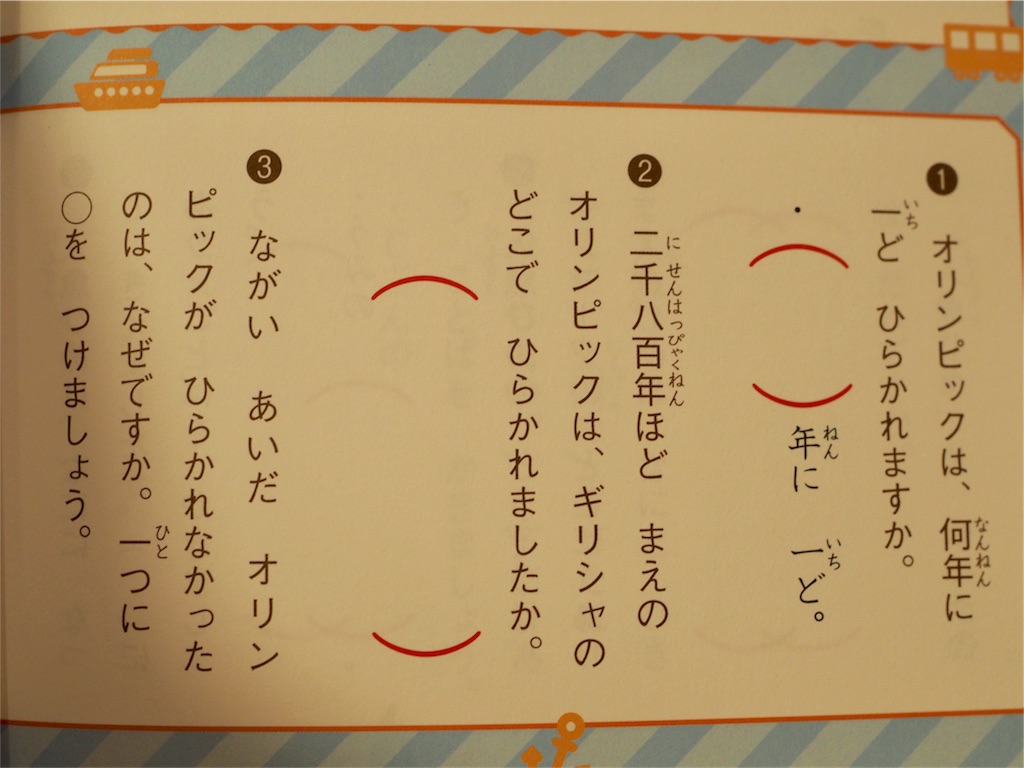 ❶ オリンピックは、何年に
なんねん
一ど ひらかれますか。
いち
・( )年に 一ど。
ねん いち
❷ 二千八百年ほど まえの
に せんはっぴゃくねん
オリンピックは、ギリシャの
どこで ひらかれましたか。
( )
❸ ながい あいだ オリン
ピックが ひらかれなかった
のは、なぜですか。一つに
ひと
○を つけましょう。